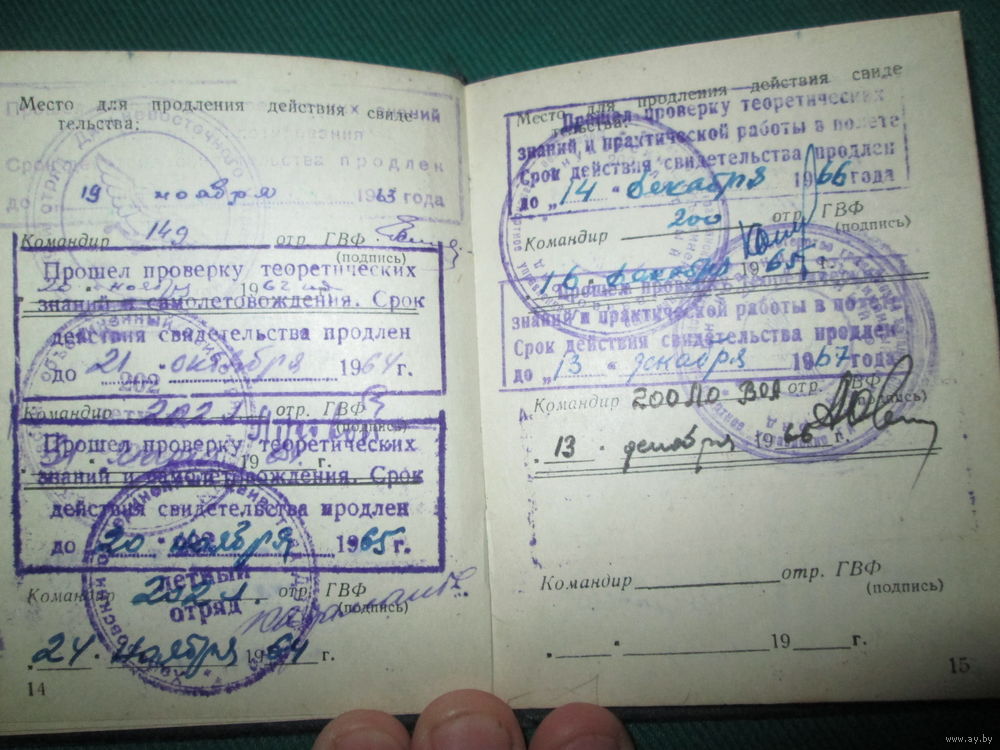 Место для продления действия свиде
тельства:
Срок свидетельства продлен
до 19 ноября 1963 года
Командир 149 отр. ГВФ
(подпись)
Прошел проверку теоретических
20 ноября 1962 г.
знаний и самолетовождения. Срок
действия свидетельства продлен
до 21 октября 1964 г.
202
Командир 202 л. отр. ГВФ
(подпись)
Прошел проверку теоретических
19 г.
знаний и самолетовождения. Срок
действия свидетельства продлен
до 20 ноября 1965 г.
летный
отряд
Командир 202 л. отр. ГВФ
(подпись)
24 ноября 1964 г.
14
Место для продления действия свиде
тельства:
Прошел проверку теоретических
знаний и практической работы в полете
Срок действия свидетельства продлен
до „14" декабря 1966 года
Командир 200 отр. ГВФ
(подпись)
16 декабря 1965 г.
Прошел проверку теоретических
знаний и практической работы в полете
Срок действия свидетельства продлен
до „13" декабря 1967 года
Командир 200 ЛО отр. ГВФ
(подпись)
13 декабря 1966 г.
Командир отр. ГВФ
(подпись)
19 г.
15
www.ay.by